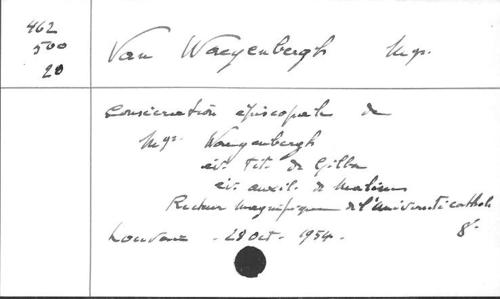 462
500
20
Van Waeyenbergh Mgr.
Consécration épiscopale de
Mgr. Waeyenbergh
év. Tit. de Gilba
év. auxil. de Malines
Recteur magnifique de l'Université cathol.
Louvain - 28 Oct. - 1954. 8°